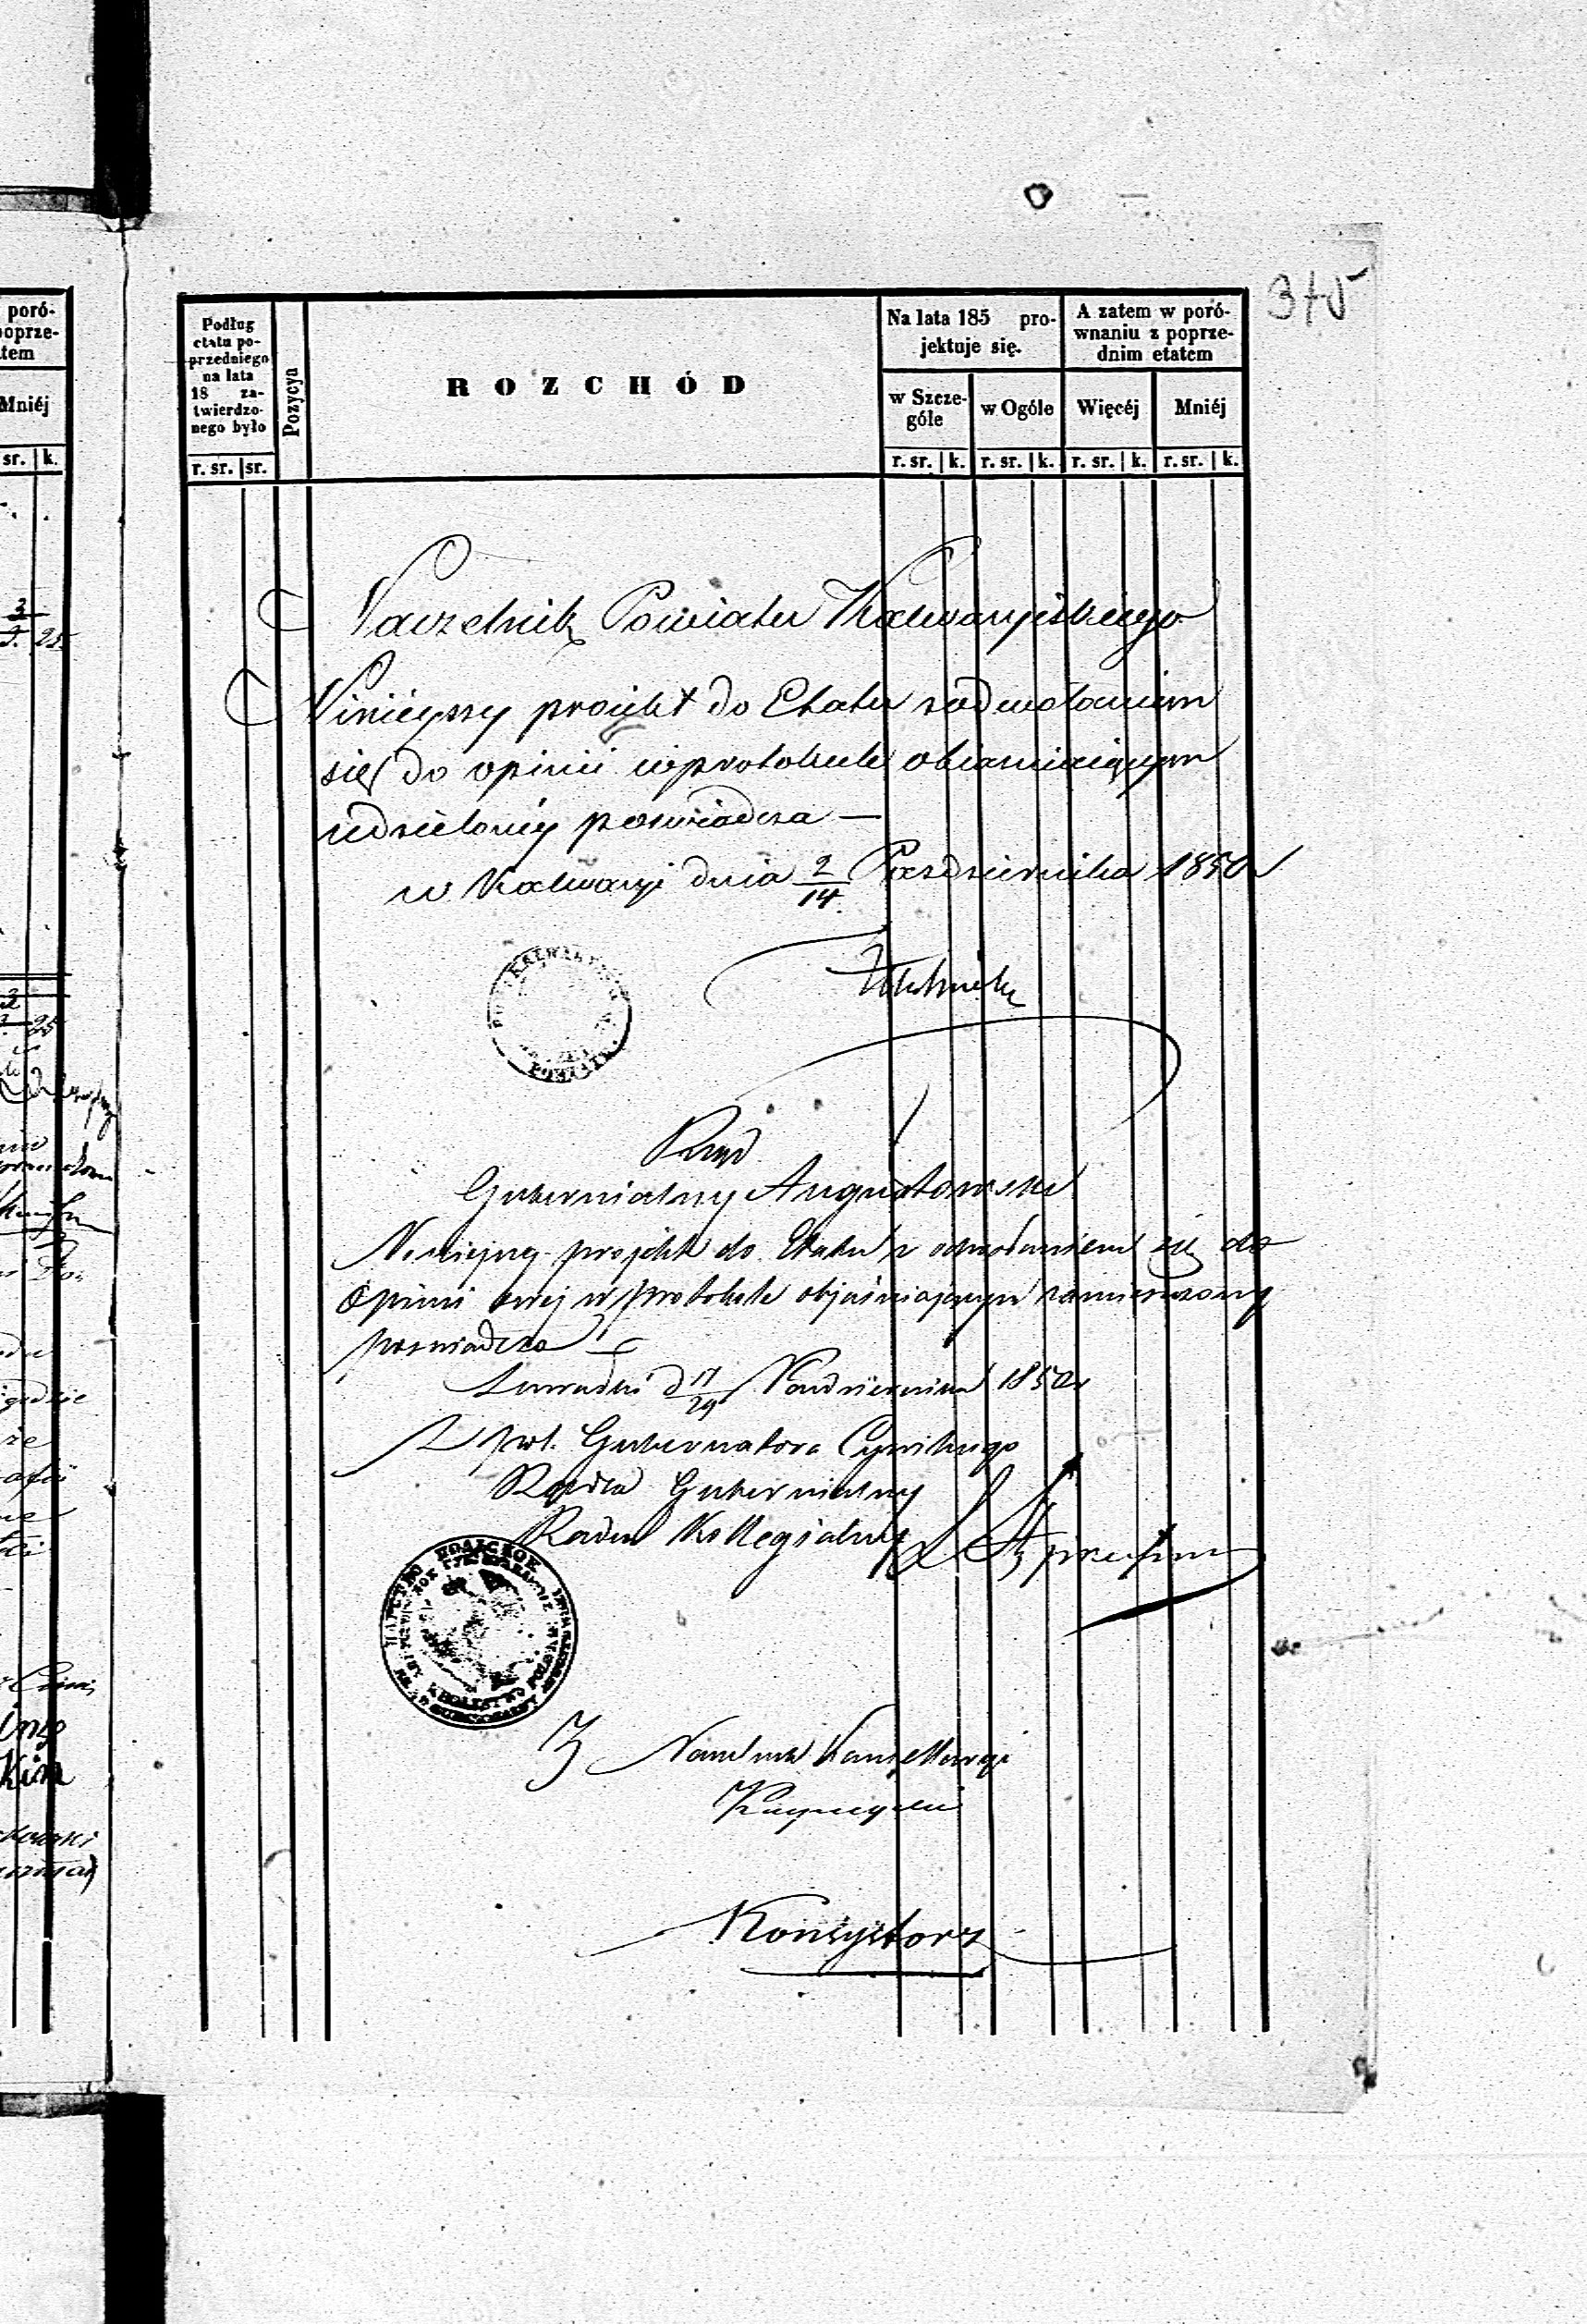 375
Podług
etatu po-
przedniego
na lata
18 za-
twierdzo-
nego było
Pozycya
ROZCHÓD
Na lata 185 pro-
jektuje się.
A zatem w poró-
wnaniu z poprze-
dnim etatem
w Szcze-
góle
w Ogóle
Więcéj
Mniéj
r. sr. sr.
r. sr. k. r. sr. k. r. sr. k. r. sr. k.
poró-
poprze-
tem
Mniéj
sr. k.
25
25
Naczelnik Powiatu Kalwaryiskiego
Ninieyszy proiekt do Etatu z odwołaniem
się do opinii w protokule obiasniaiącym
udzieloney poswiadcza —
w Kalwaryi dnia 2/14 Pazdziernika 1850 r
Rząd
Gubernialny Augustowski
Niniejszy projekt do Etatu z odwołaniem się do
Opinii swej w protokule objaśniającym zamieszczonej
poswiadcza
Suwałki d 17/29 Pazdziernika 1850 r
pół. Gubernatora Cywilnego
Radca Gubernialny
Radca Kollegialny
Naczelnik Kancellaryi
Konsystorz